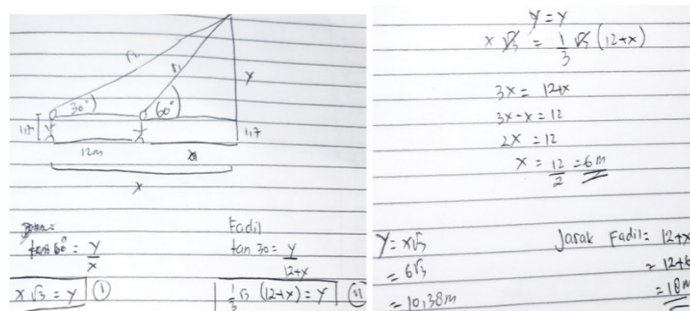 r₂
r₁
y
30°
60°
1,7
1,7
12m
x
x
Fadil
tan 60° = y/x
tan 30 = y/12+x
x √3 = y (I)
1/3 √3 (12+x) = y (II)
y = y
x √3 = 1/3 √3 (12+x)
3x = 12+x
3x-x = 12
2x = 12
x = 12/2 = 6 m
y = x√3
= 6√3
= 10,38 m
Jarak Fadil = 12+x
= 12+6
= 18m